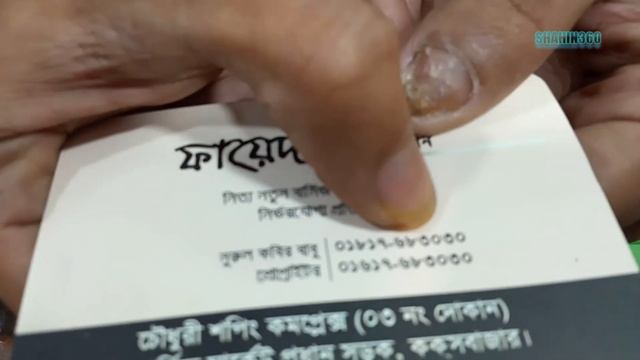 SHAHIN360
ফায়েদ
নিত্য নতুন বার্মিজ
নির্ভরযোগ্য
নুরুল কবির বাবু
প্রোপ্রাইটর
০১৮১৭-৬৮৩০৩০
০১৬১৭-৬৮৩০৩০
চৌধুরী শপিং কমপ্লেক্স (০৩ নং দোকান)
মার্কেট প্রধান সড়ক, কক্সবাজার।